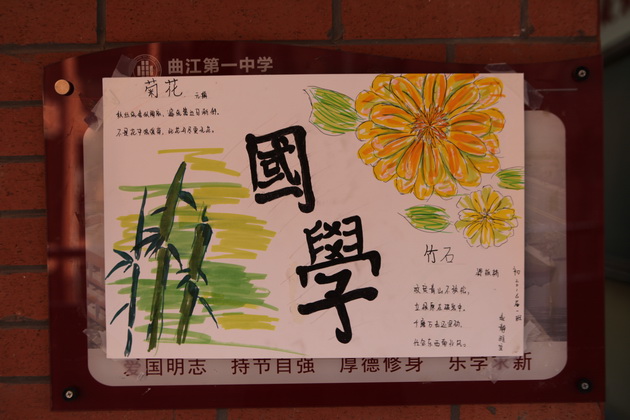 曲江第一中学
菊花
元稹
秋丛绕舍似陶家，遍绕篱边日渐斜。
不是花中偏爱菊，此花开尽更无花。
國
學
竹石
郑板桥
咬定青山不放松，
立根原在破岩中。
千磨万击还坚劲，
任尔东西南北风。
爱国明志 持节自强 厚德修身 乐学求新